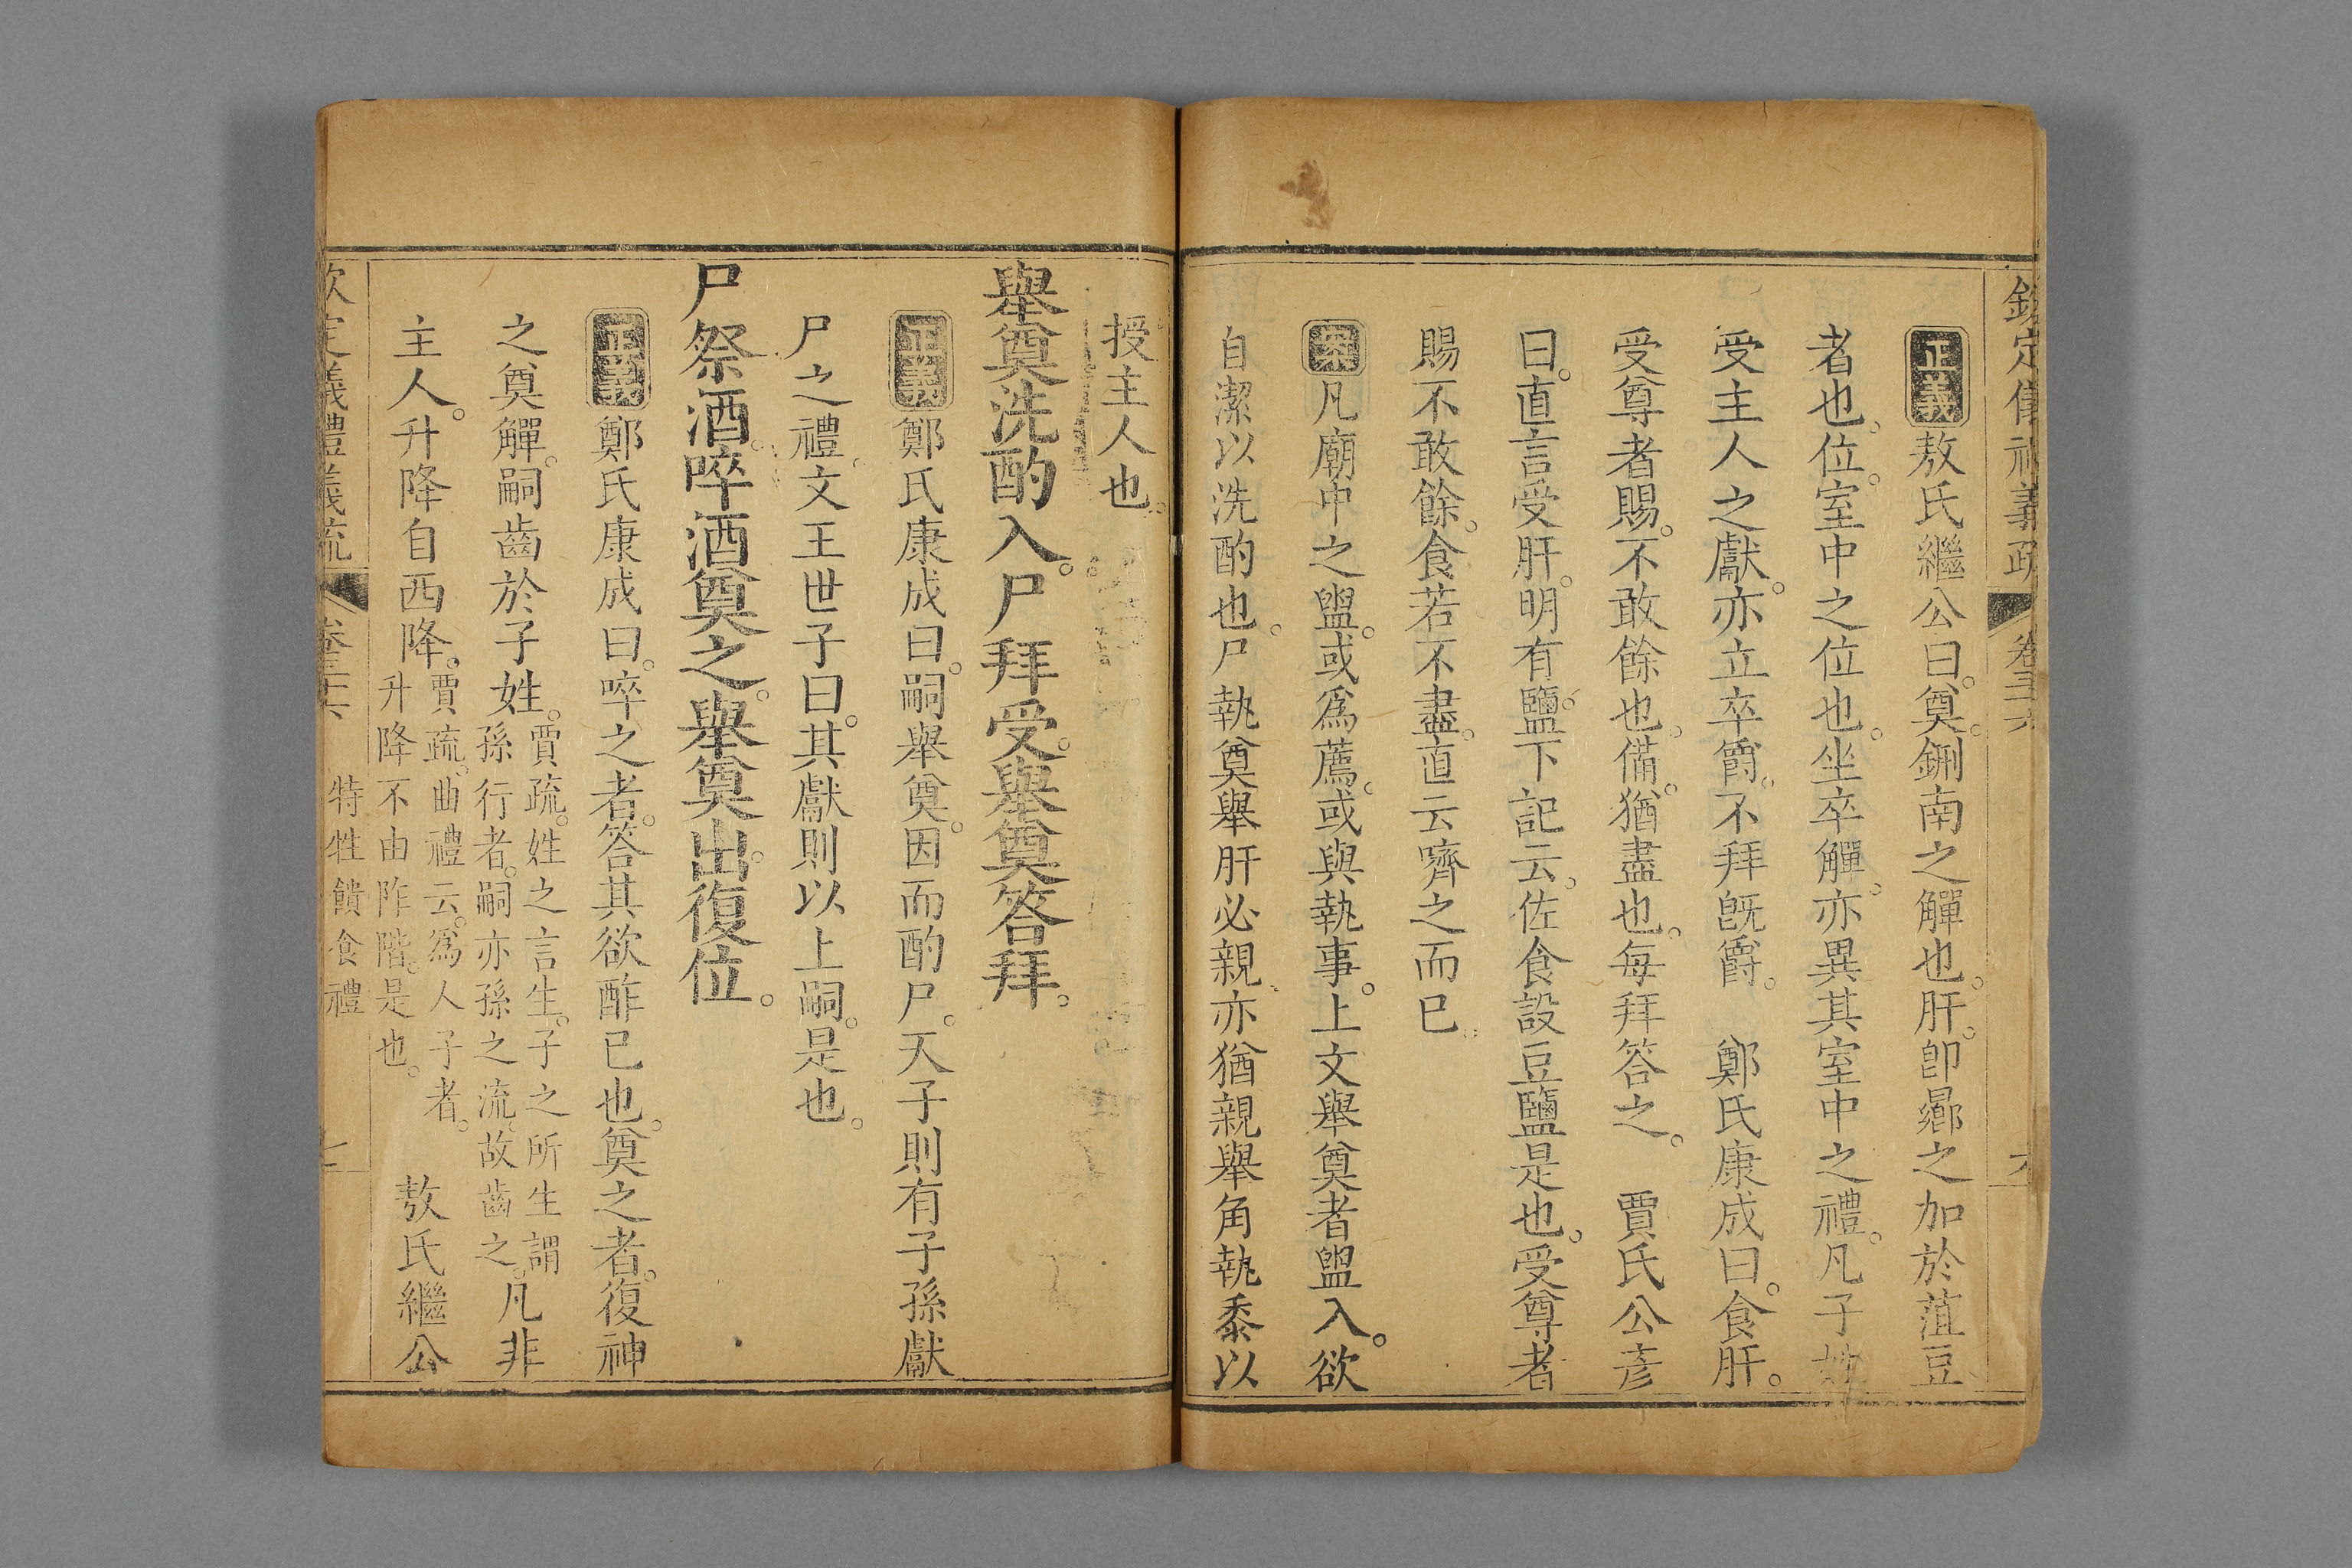 欽定儀禮義疏 卷三十六
正義敖氏繼公曰。奠。鉶南之觶也。肝。卽曏之加於菹豆
者也。位。室中之位也。坐卒觶。亦異其室中之禮。凡子姓
受主人之獻。亦立卒爵。不拜旣爵。 鄭氏康成曰。食肝。
受尊者賜。不敢餘也。備。猶盡也。每拜答之。 賈氏公彥
曰。直言受肝。明有鹽。下記云。佐食設豆鹽是也。受尊者
賜不敢餘。食若不盡。直云嚌之而已。
案凡廟中之盥。或爲薦。或與執事。上文舉奠者盥入。欲
自潔以洗酌也。尸執奠舉肝必親。亦猶親舉角執黍以
授主人也。
舉奠洗酌入。尸拜受。舉奠答拜。
正義鄭氏康成曰。嗣舉奠。因而酌尸。天子則有子孫獻
尸之禮。文王世子曰。其獻則以上嗣。是也。
尸祭酒。啐酒。奠之。舉奠出。復位。
正義鄭氏康成曰。啐之者。答其欲酢已也。奠之者。復神
之奠觶。嗣齒於子姓。賈疏。姓之言生。子之所生謂孫行者。嗣亦孫之流。故齒之。凡非
主人。升降自西降。賈疏。曲禮云。爲人子者。升降不由阼階。是也。 敖氏繼公
欽定儀禮義疏 卷三十六 特牲饋食禮